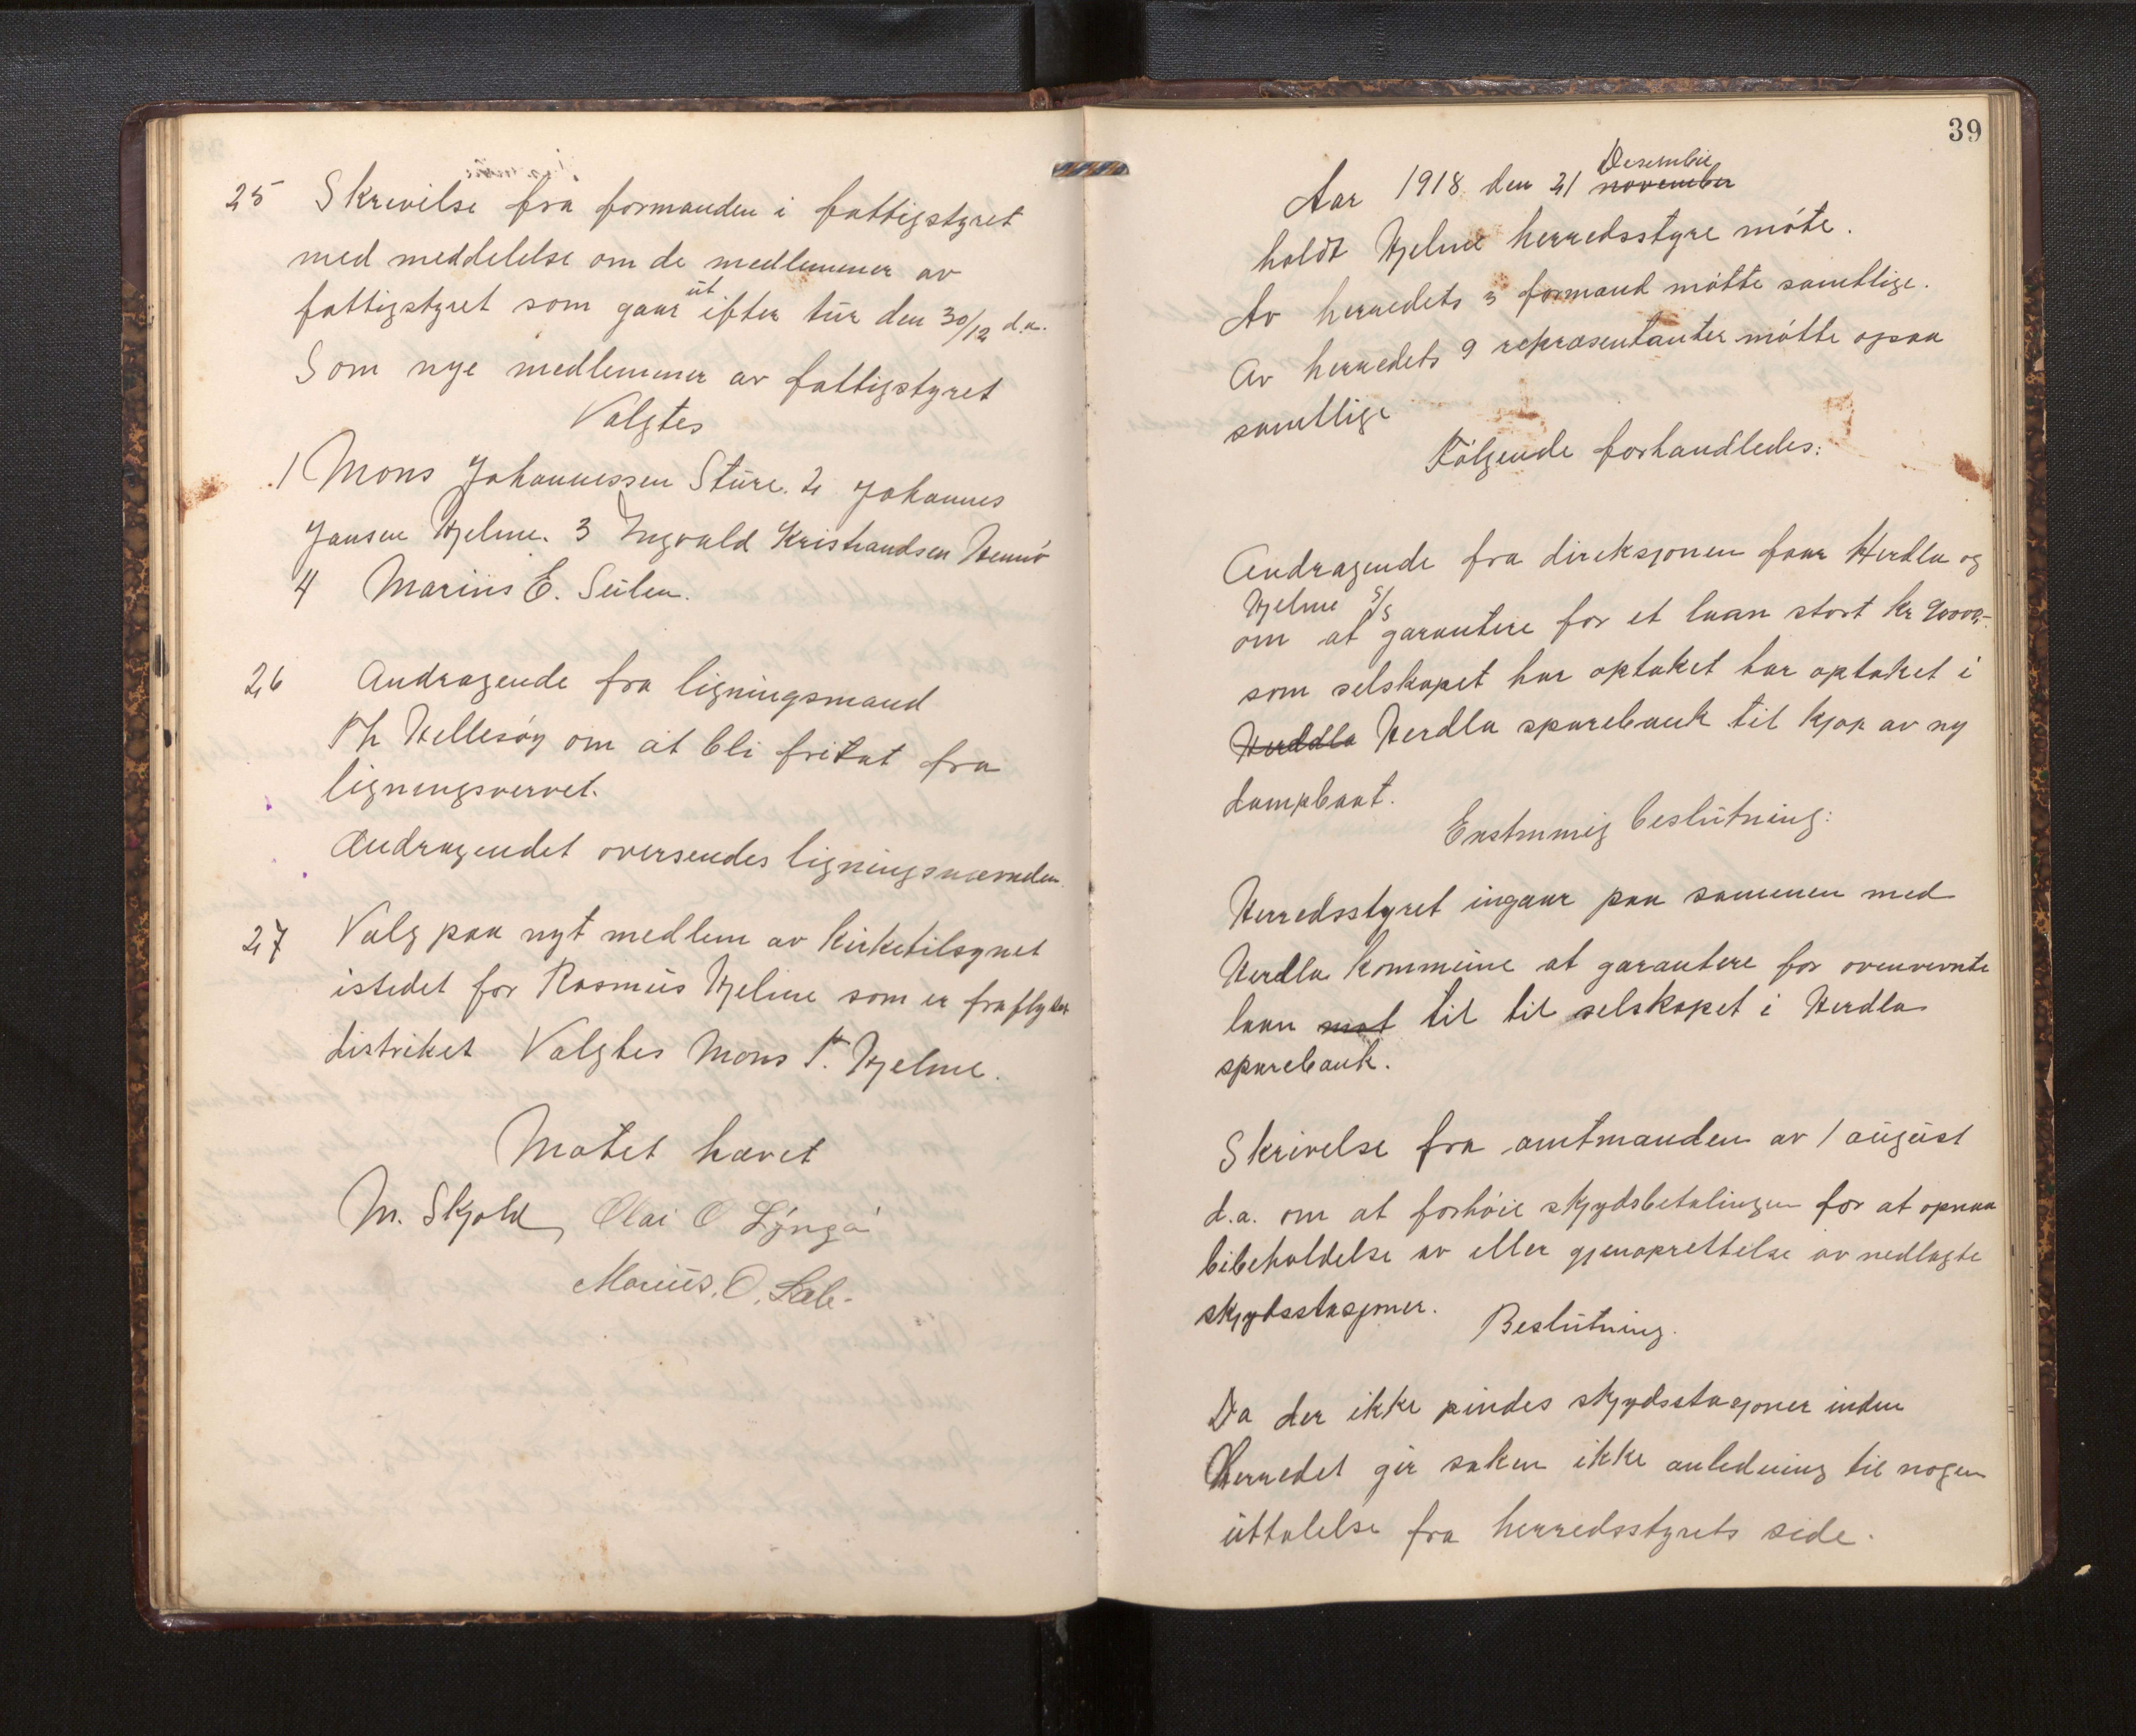 25 Skrivilse fra formanden i fattigstyret
med meddelelse om de medlemmer av
fattigstyret som gaar ut ifter tur den 30/12 d.a.
Som nye medlemmer av fattigstyret
Valgtes
1 Mons Johannessen Sture. 2 Johannes
Jansen Hjelme. 3 Ingvald Kristiandsen Hernø
4 Marius E. Seilen.
26 Andragende fra ligningsmand
Th Hellesøy om at bli fritat fra
ligningsvervet.
Andragendet oversendes ligningsnævnden
27 Valg paa nyt medlem av kirketilsynet
istedet for Rasmus Hjelme som er fraflyttet
distriket Valgtes Mons T. Hjelme.
Møtet hævet
M. Skjold, Olai O Lyngø
Marius. O. Sæle.
39
Aar 1918 den 21 Desember november
holdt Hjelme herredsstyre møte.
Av herredets 3 formænd møtte samtlige.
Av herredets 9 repræsentanter møtte ogsaa
samtlige
Følgende forhandledes:
Andragende fra direksjonen faar Herdla og
Hjelme S/S
om at garantere for et laan stort kr 90000,-
som selskapet har optaket har optaket i
Herddla Herdla sparebank til kjøp av ny
dampbaat.
Enstmmig beslutning:
Herredsstyret ingaar paa sammen med
Herdla kommune at garantere for ovenvevnte
laan mot til til selskapet i Herdla
sparebank.
Skrivelse fra amtmanden av 1 august
d.a. om at forhøie skydsbetalingen for at opnaa
bibeholdelse av eller gjenoprettelse av nedlagte
skydsstasjoner.
Beslutning.
Da der ikke findes skydsstasjoner inden
Herredet gir saken ikke anledning til nogen
uttalelse fra herredsstyrets side.